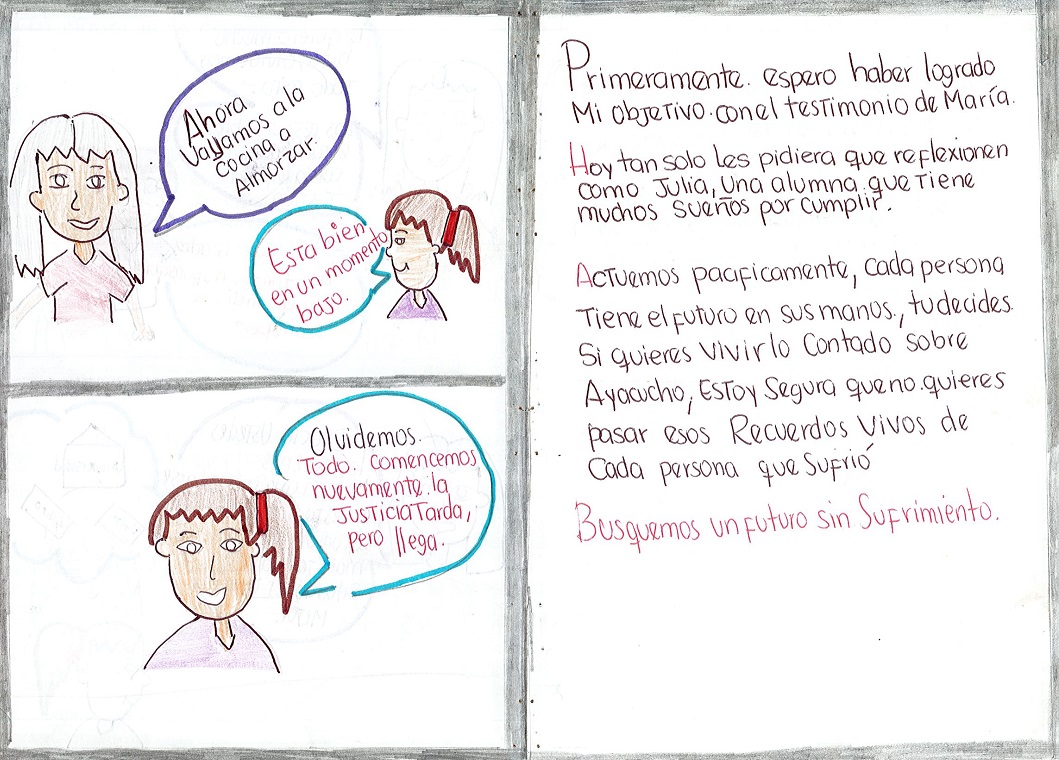 Ahora
Vayamos a la
cocina a
Almorzar.
Esta bien
en un momento
bajo.
Olvidemos.
Todo. Comencemos
nuevamente. la
Justicia Tarda,
pero llega.
Primeramente. espero haber logrado
Mi objetivo. con el testimonio de María.
Hoy tan solo les pidiera que reflexionen
como Julia, Una alumna. que Tiene
muchos sueños por cumplir.
Actuemos pacificamente, Cada persona
Tiene el futuro en sus manos., tu decides.
Si quieres Vivir lo Contado sobre
Ayacucho, Estoy Segura que no. quieres
pasar esos Recuerdos Vivos de
Cada persona que Sufrió
Busquemos un futuro sin Sufrimiento.